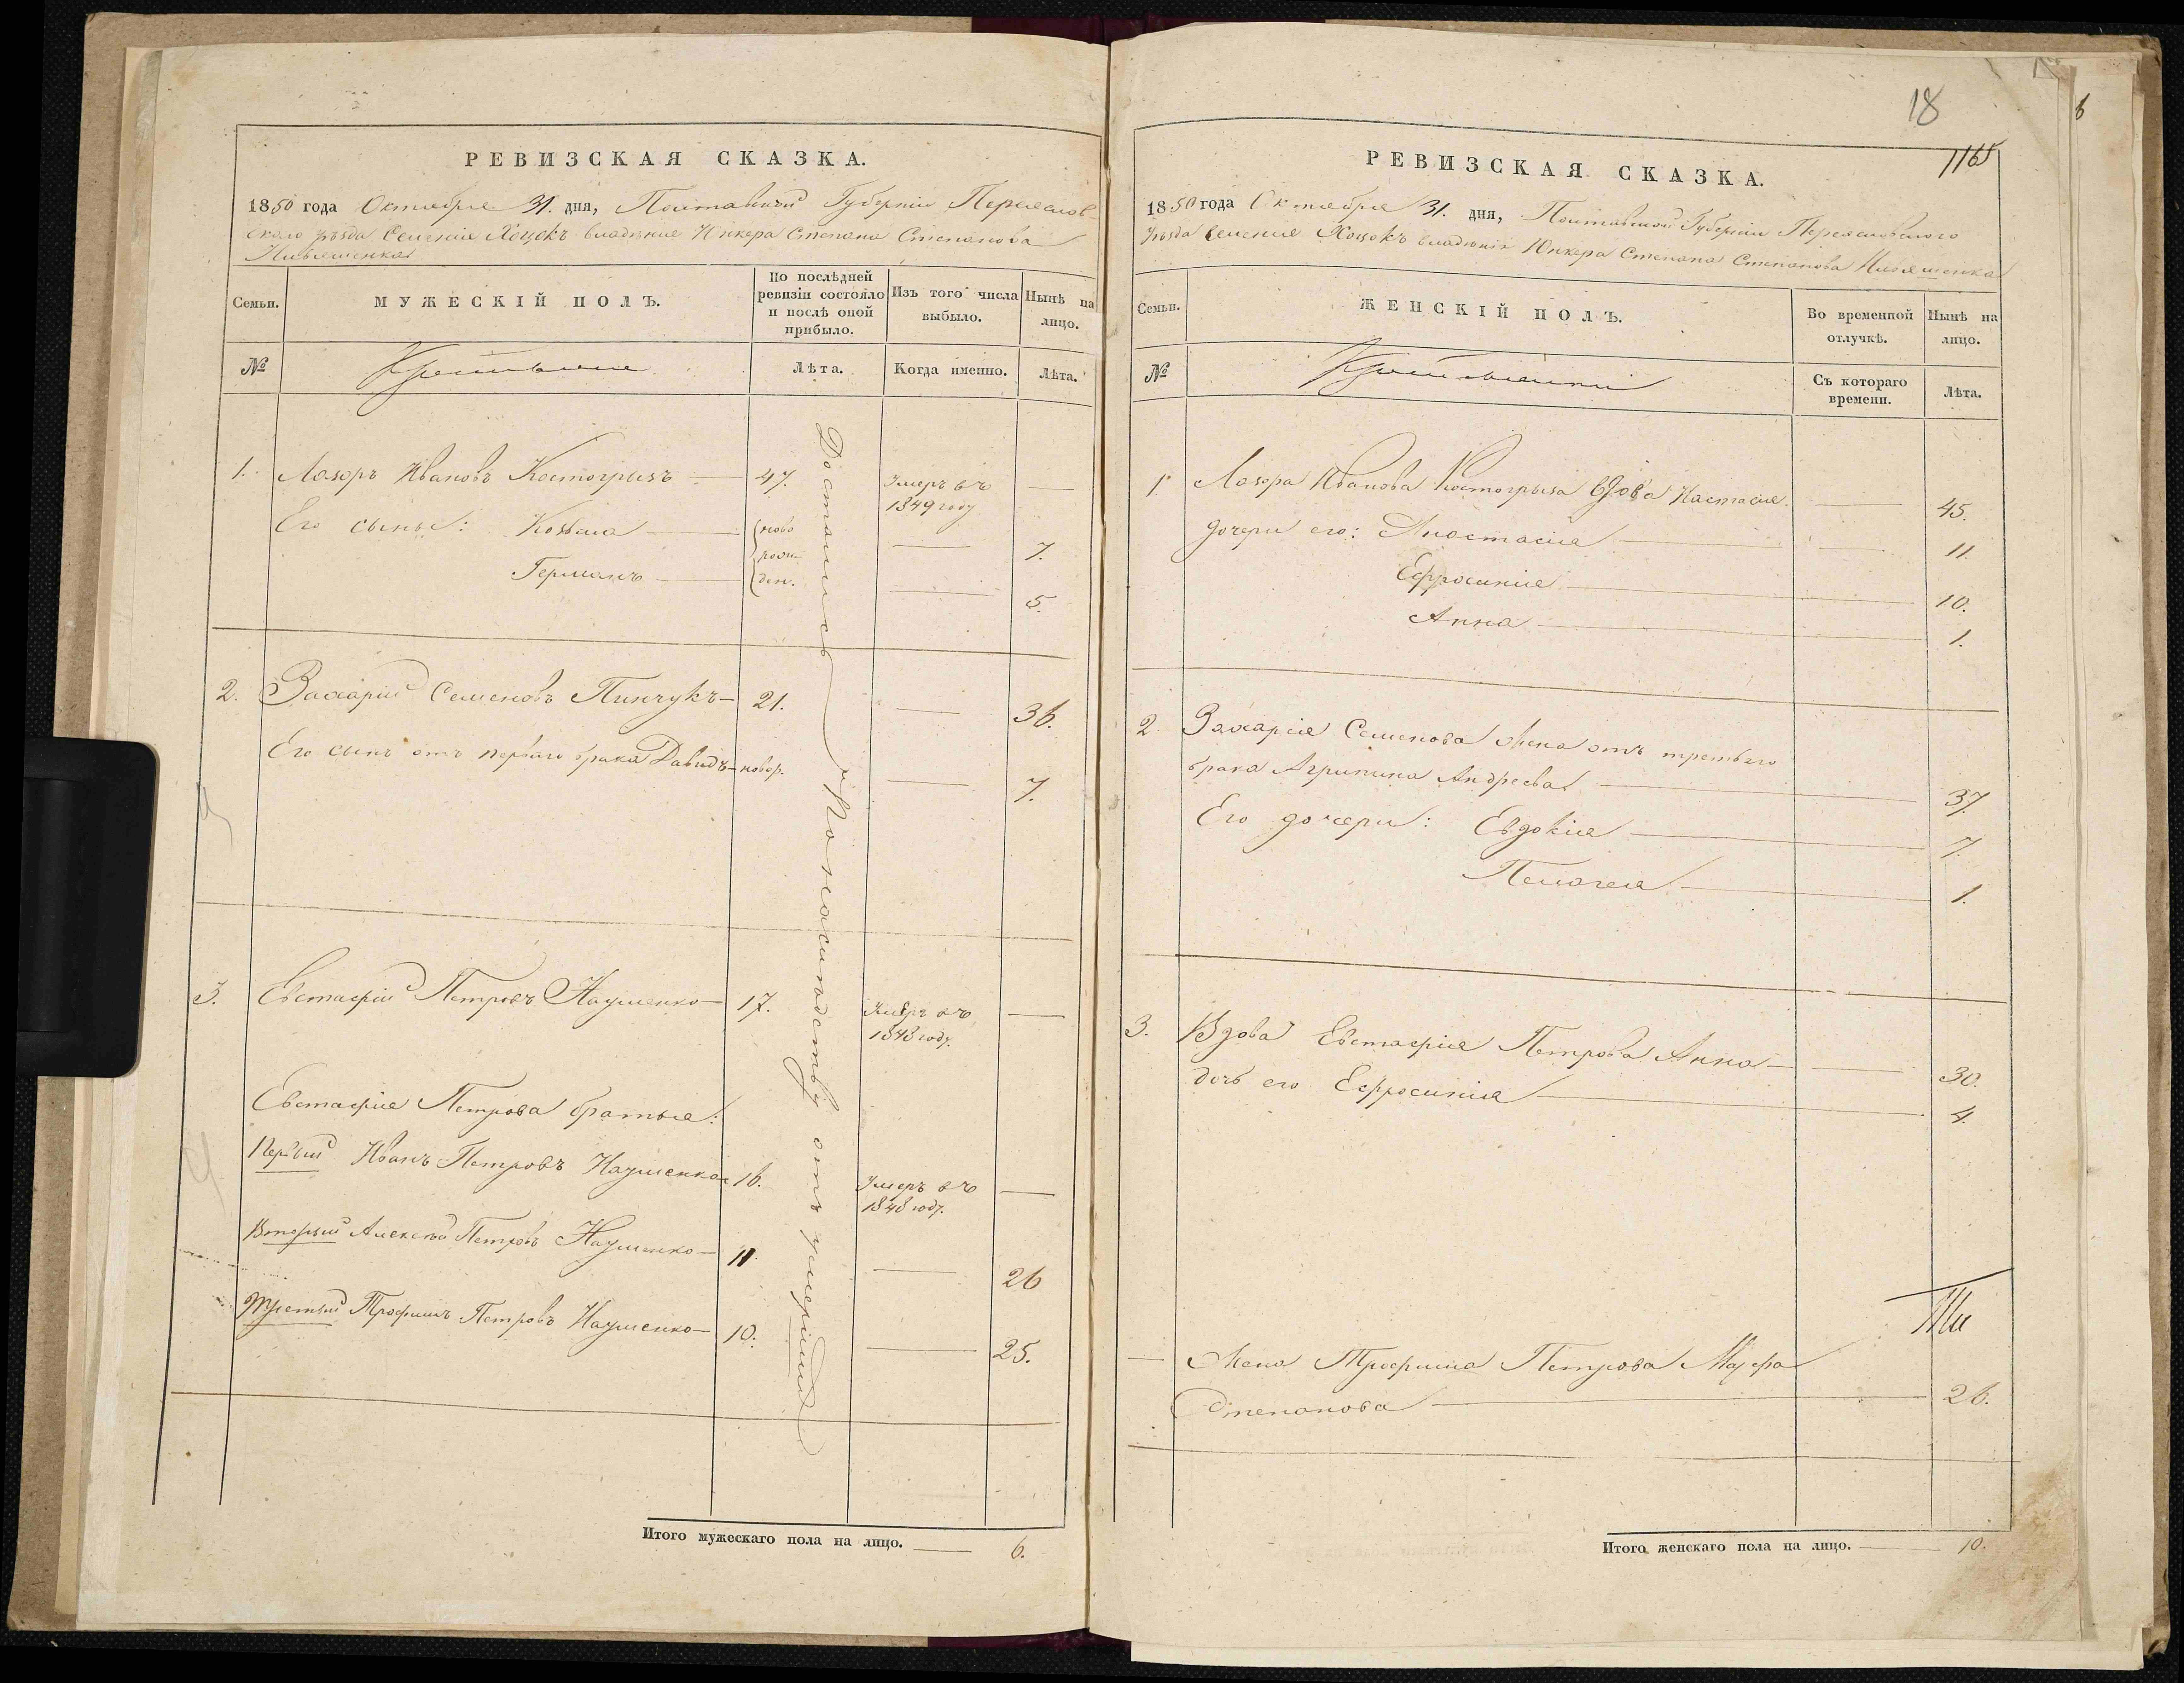 18
1165
РЕВИЗСКАЯ СКАЗКА.
1850 года Октября 31. дня, Полтавской Губерніи Переяслов-
ского уѣзда Селенія Хоцокъ владѣнія Юнкера Степана Степанова
Семьи.
МУЖЕСКІЙ ПОЛЪ.
По послѣдней ревизіи состояло и послѣ оной прибыло.
Изъ того числа выбыло.
Нынѣ на лицо.
№
Крестьяне
Лѣта.
Когда именно.
Лѣта.
1. Лазоръ Ивановъ Костогрызъ 47. Умеръ въ 1849 году
Его сыны: Козьма ново 7.
рож-
Германъ ден. 5.
2. Захарий Семеновъ Пинчукъ 21. 36.
Его сынъ отъ перваго брака Давидъ новор. 7.
3. Евстафій Петровъ Науменко 17. Умеръ въ 1848 году.
Евстафія Петрова братья:
Первый Иванъ Петровъ Науменко 16. Умеръ въ 1848 году.
Вторый Алексѣй Петровъ Науменко 11. 26
Третый Трофимъ Петровъ Науменко 10. 25.
Достались по наслѣдству отъ умершей
Итого мужескаго пола на лицо. 6.
РЕВИЗСКАЯ СКАЗКА.
1850 года Октября 31. дня, Полтавской Губерніи Переясловского
Уѣзда Селенія Хоцокъ владѣнія Юнкера Степана Степанова
Семьи.
ЖЕНСКІЙ ПОЛЪ.
Во временной отлучкѣ.
Нынѣ на лицо.
№
Съ котораго времени.
Лѣта.
1. Лазора Иванова Костогрыза вдова Настасія 45.
дочери его: Анастасія 11.
Ефросинія 10.
Анна 1.
2. Захарія Семенова жена отъ третьяго
брака Агрипина Андреева 37.
Его дочери: Евдокія 7.
Пелагея 1.
3. Вдова Евстафія Петрова Анна 30.
дочь его Ефросинія 4.
Жена Трофима Петрова Марфа
Степанова 26.
Итого женскаго пола на лицо. 10.